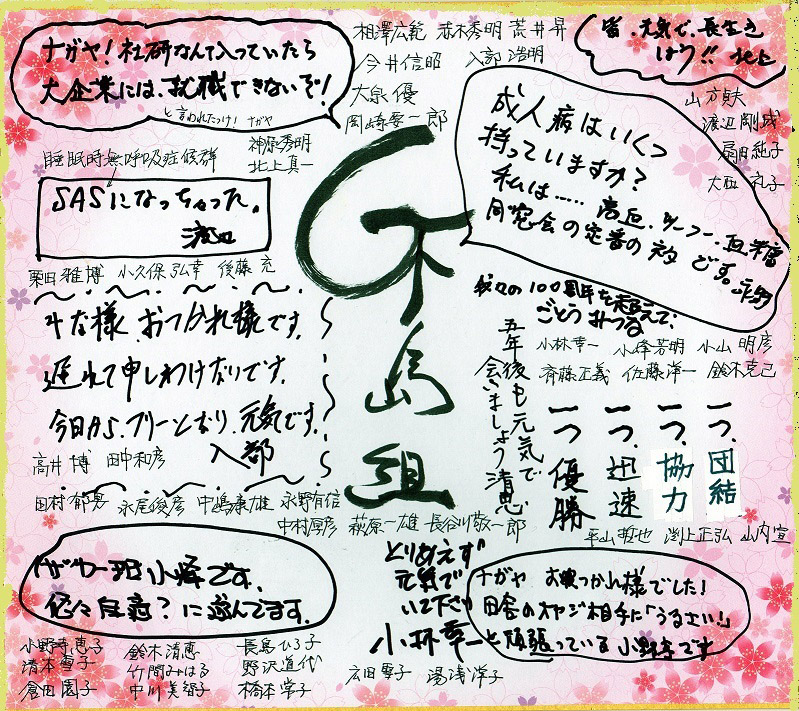 ナガヤ!社研なんて入っていたら
大企業には、就職できないぞ!
と言われたっけ! ナガヤ
相澤広範 赤木秀明 荒井昇
今井信昭 入部浩明
大泉優
岡崎要一郎
神原秀明
北上真一
皆、元気で、長生き
しよう!! 北上
山方貞夫
渡辺剛成
扇田純子
大西礼子
成人病はいくつ
持っていますか?
私は……高血、
同窓会の定番のネタです。永野
睡眠時無呼吸症候群
SASになっちゃった。
渡辺
栗田雅博 小久保弘幸 後藤充
G下島組
我々の100周年を超えて、
ごとうみつる
小林幸一 小峰芳明 小山明彦
斉藤正義 佐藤洋一 鈴木克己
五年後も元気で
会いましょう 清恵
一つ、団結
一つ、協力
一つ、迅速
一つ、優勝
斗な様、おつかれ様です。
遅れて申しわけないです。
今日から、フリーとなり、元気です。
入部
高井博 田中和彦
田村郁男 永尾俊彦 中嶋康雄 永野有信
中村厚彦 萩原一雄 長谷川敬一郎
平山哲也 渕上正弘 山内宣
小峰です。
色々任意?に遊んでます。
とりあえず
元気で
いて下さい
小林幸一
ナガヤ お疲つかれ様でした!
田舎のオヤジ相手に「うるさい!」
と頑張っている小野寺です
小野寺恵子 鈴木清恵 長島ひろ子
清本雪子 竹間みはる 野沢道代
倉田園子 中川美智子 橋本常子
広田要子 湯浅洋子